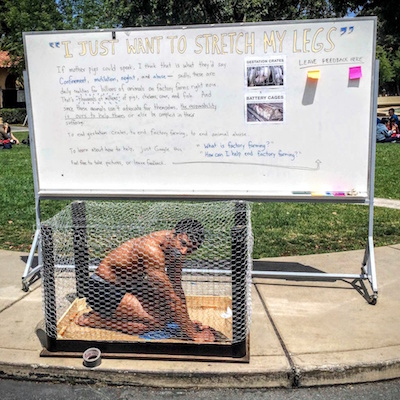 "I JUST WANT TO STRETCH MY LEGS"
If mother pigs could speak, I think that is what they'd say.
Confinement, mutilation, neglect, and abuse — sadly these are
daily realities for billions of animals on factory farms right now.
That's thousands of millions of pigs, chickens, cows, and fish. And
since these animals can't advocate for themselves, the responsibility
is ours to help them or else be complicit in their
suffering.
To end gestation crates, to end factory farming, to end animal abuse.
To learn about how to help, Just Google this:
"What is factory farming?"
"How can I help end factory farming?"
Feel free to take pictures, or leave feedback
GESTATION CRATES
BATTERY CAGES
LEAVE FEEDBACK HERE!